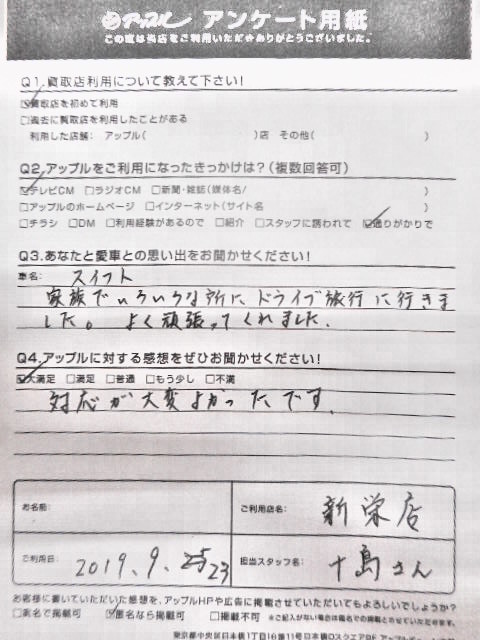 アップル アンケート用紙
この度は当店をご利用いただきありがとうございました。
Q1.買取店利用について教えて下さい!
☑買取店を初めて利用
□過去に買取店を利用したことがある
利用した店舗: アップル( )店 その他( )
Q2.アップルをご利用になったきっかけは?(複数回答可)
☑テレビCM □ラジオCM □新聞・雑誌(媒体名/ )
□アップルのホームページ □インターネット(サイト名 )
□チラシ □DM □利用経験があるので □紹介 □スタッフに誘われて ☑通りがかりで
Q3.あなたと愛車との思い出をお聞かせください!
車名: スイフト
家族でいろいろな所にドライブ旅行に行きま
した。よく頑張ってくれました。
Q4.アップルに対する感想をぜひお聞かせください!
☑大満足 □満足 □普通 □もう少し □不満
対応が大変よかったです。
お名前:
ご利用店名: 新栄店
ご利用日: 2019.9.23
担当スタッフ名: 十島さん
お客様に書いていただいた感想を、アップルHPや広告に掲載させていただいてもよろしいでしょうか?
□実名で掲載可 ☑匿名なら掲載可 □掲載不可 ※ご記入がない場合は匿名での掲載とさせていただきます。
東京都中央区日本橋1丁目16番11号日本橋DスクエアBF